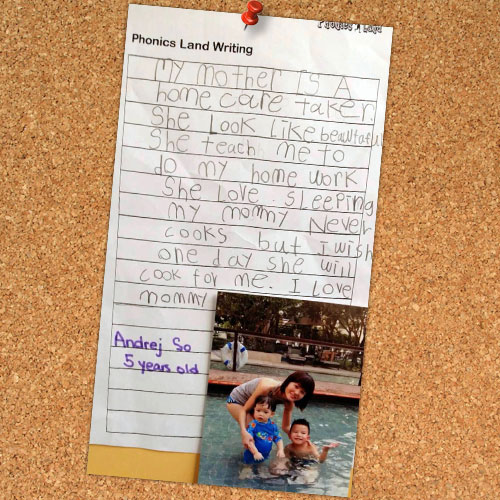 Phonics Land Writing
My mother is A
home care taker.
She Look Like beautaful
She teach me to
do my home work
She Love sleeping
my mommy Never
cooks but i wish
one day she will
cook for me. I Love
mommy
Andrej So
5 years old